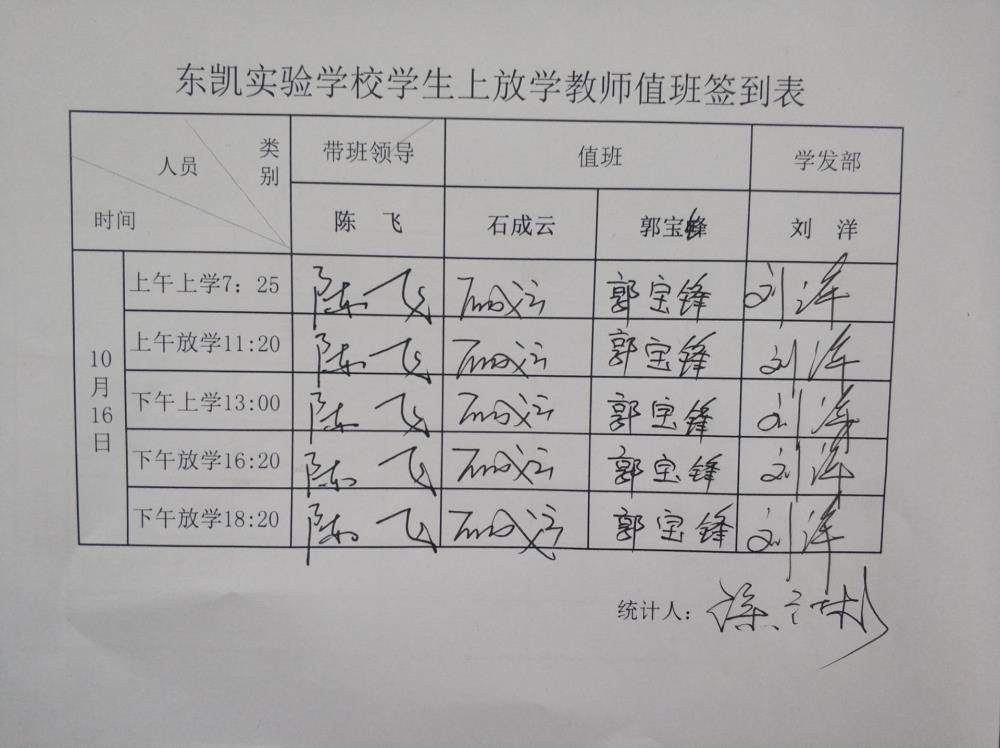 东凯实验学校学生上放学教师值班签到表
类别 人员 时间 带班领导 值班 学发部
陈 飞 石成云 郭宝锋 刘 洋
10月16日
上午上学7：25 陈飞 石成云 郭宝锋 刘洋
上午放学11:20 陈飞 石成云 郭宝锋 刘洋
下午上学13:00 陈飞 石成云 郭宝锋 刘洋
下午放学16:20 陈飞 石成云 郭宝锋 刘洋
下午放学18:20 陈飞 石成云 郭宝锋 刘洋
统计人：